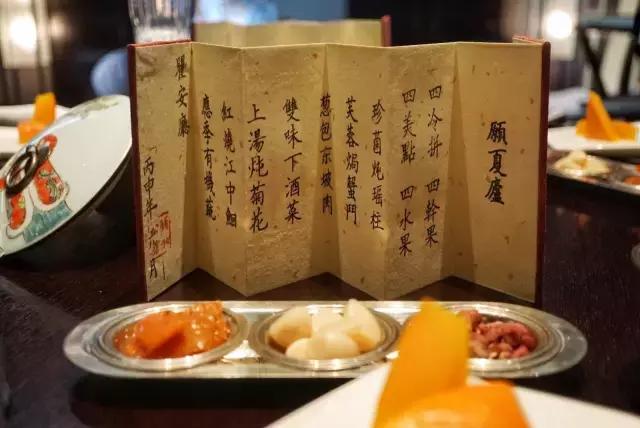 願夏廬
四冷拼 四幹果
四美點 四水果
珍菌炖瑶柱
芙蓉焗蟹鬥
葱包东坡肉
雙味下酒菜
上湯炖菊花
紅燒江中鮰
應季有機蔬
瞿安廳
丙申年 月